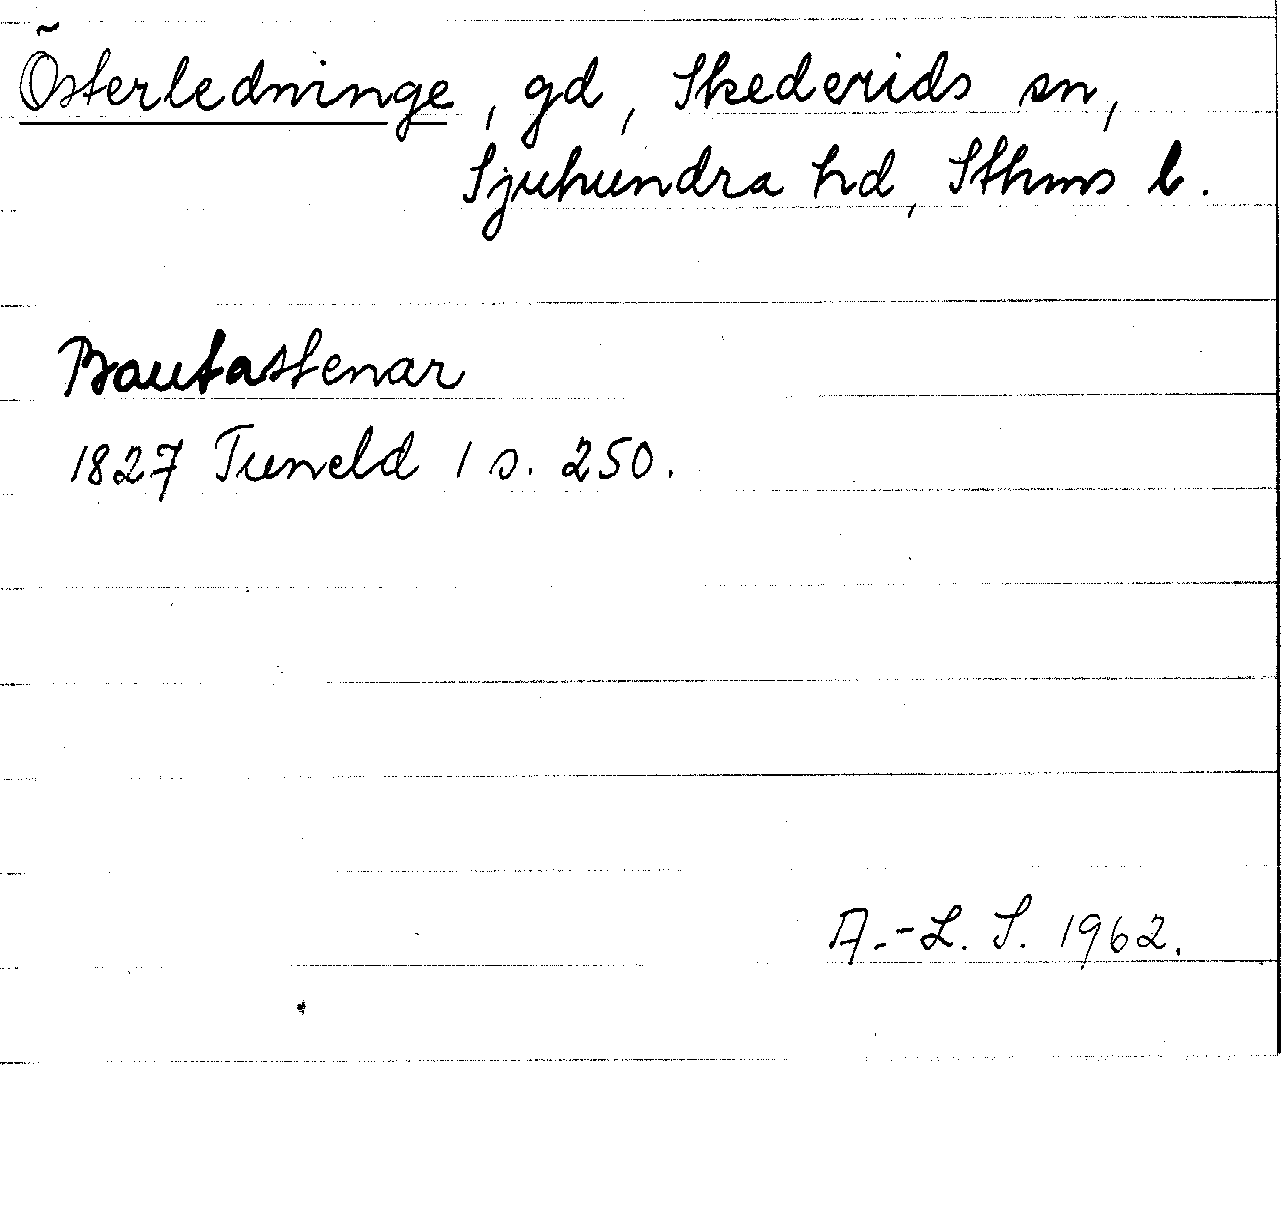 Österledninge, gd, Skederids sn,
Sjuhundra hd, Sthms l.
Bautastenar
1827 Tuneld 1 s. 250.
A.-L. S. 1962.